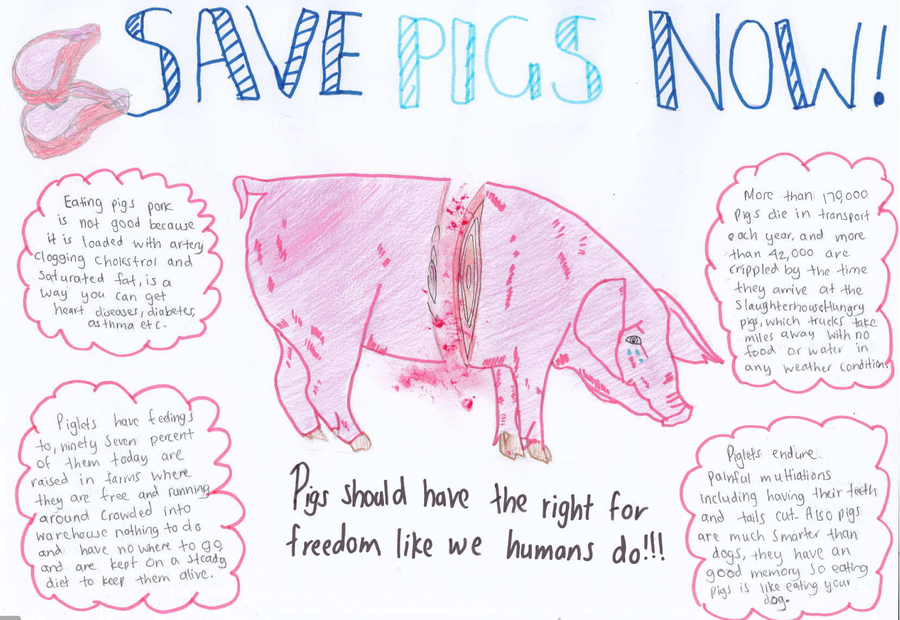 SAVE PIGS NOW!
Eating pigs pork
is not good because
it is loaded with artery
clogging cholstrol and
saturated fat, is a
way you can get
heart diseases, diabetes,
asthma etc.
More than 179,000
pigs die in transport
each year, and more
than 42,000 are
crippled by the time
they arrive at the
slaughterhouse Hungry
pigs, which trucks take
miles away with no
food or water in
any weather condition.
Piglets have feelings
to, ninety seven percent
of them today are
raised in farms where
they are free and running
around crowded into
warehouse nothing to do
and have no where to go
and are kept on a steady
diet to keep them alive.
Pigs should have the right for
freedom like we humans do!!!
Piglets endure
painful multiations
including having their teeth
and tails cut. Also pigs
are much smarter than
dogs, they have an
good memory so eating
pigs is like eating your
dog.